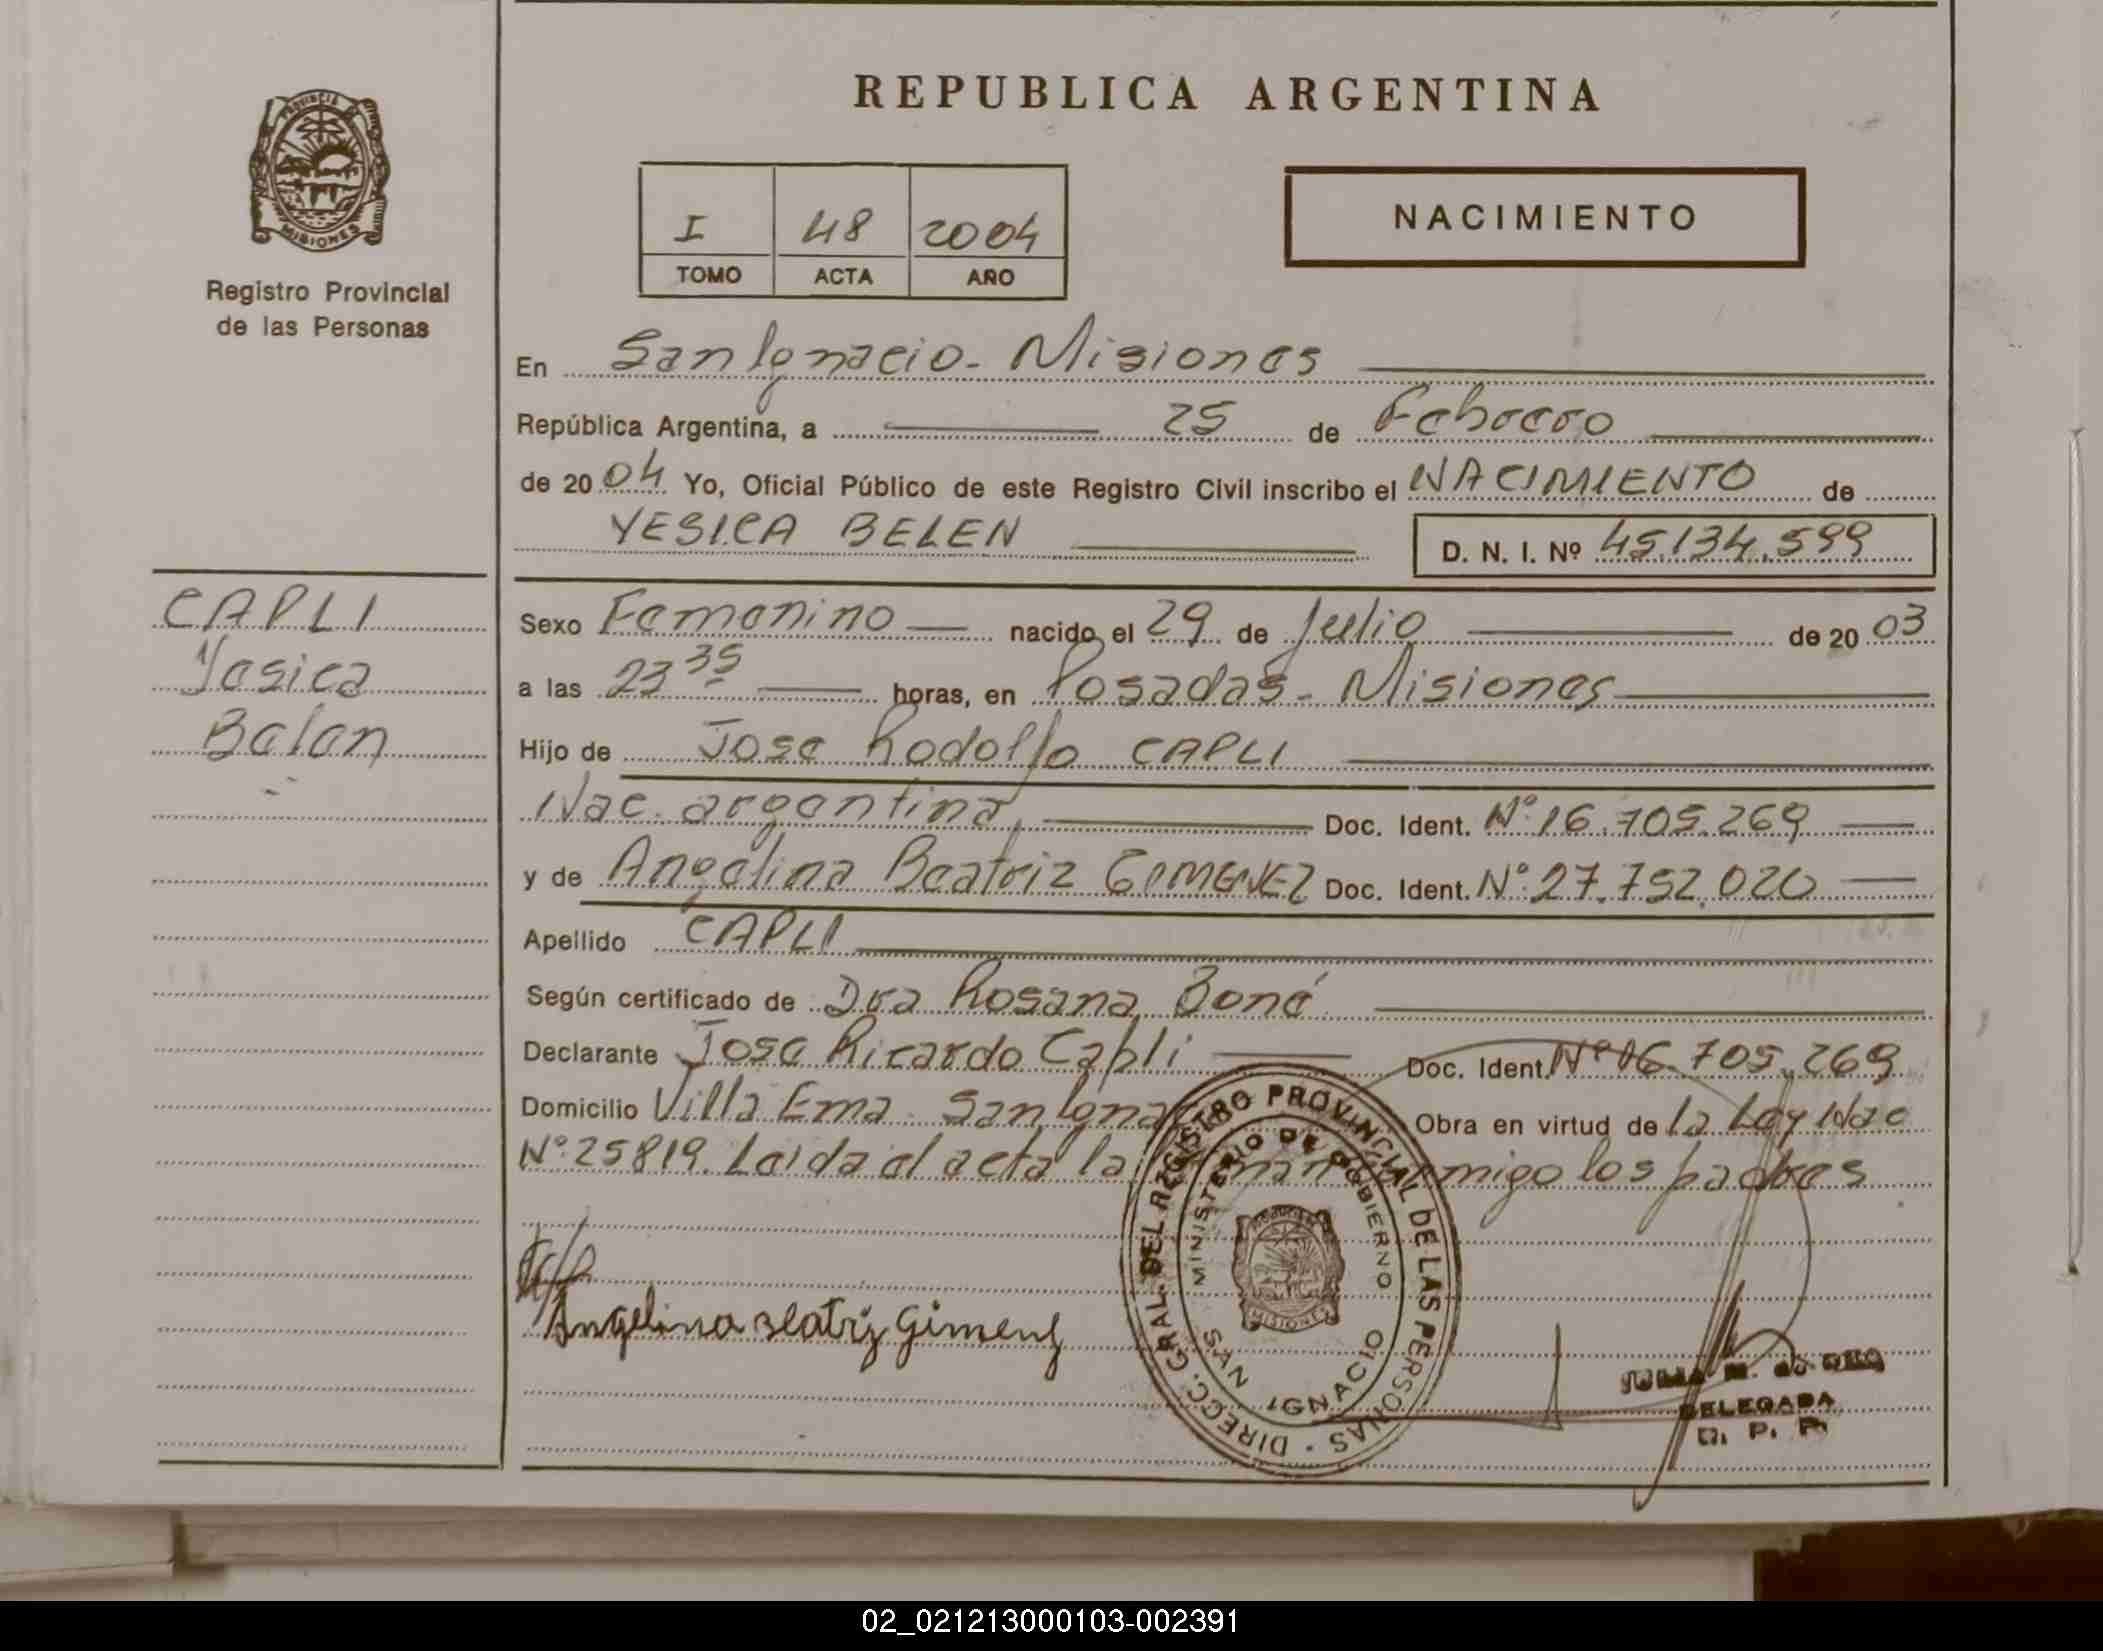 PROVINCIA DE
MISIONES
Registro Provincial
de las Personas
CAPLI
Yesica
Belen
REPUBLICA ARGENTINA
I 48 2004
TOMO ACTA AÑO
NACIMIENTO
En San Ignacio - Misiones
República Argentina, a 25 de Febrero
de 2004 Yo, Oficial Público de este Registro Civil inscribo el NACIMIENTO de
YESICA BELEN D. N. I. Nº 45.134.599
Sexo Femenino nacido el 29 de Julio de 2003
a las 23 35 horas, en Posadas - Misiones
Hijo de Jose Rodolfo CAPLI
Nac. argentina, Doc. Ident. Nº 16.705.269
y de Angelina Beatriz GIMENEZ Doc. Ident. Nº 27.752.020
Apellido CAPLI
Según certificado de Dra Rosana Boné
Declarante Jose Ricardo Capli Doc. Ident. Nº 16.705.269
Domicilio Villa Ema San Ignacio Obra en virtud de la Ley Nac
Nº 25819. Leida el acta la firman conmigo los padres
Angelina Beatriz Gimenez
DIREC. GRAL. DEL REGISTRO PROVINCIAL DE LAS PERSONAS
MINISTERIO DE GOBIERNO
MISIONES
SAN IGNACIO
DELEGADA
R. P. P.
02_021213000103-002391